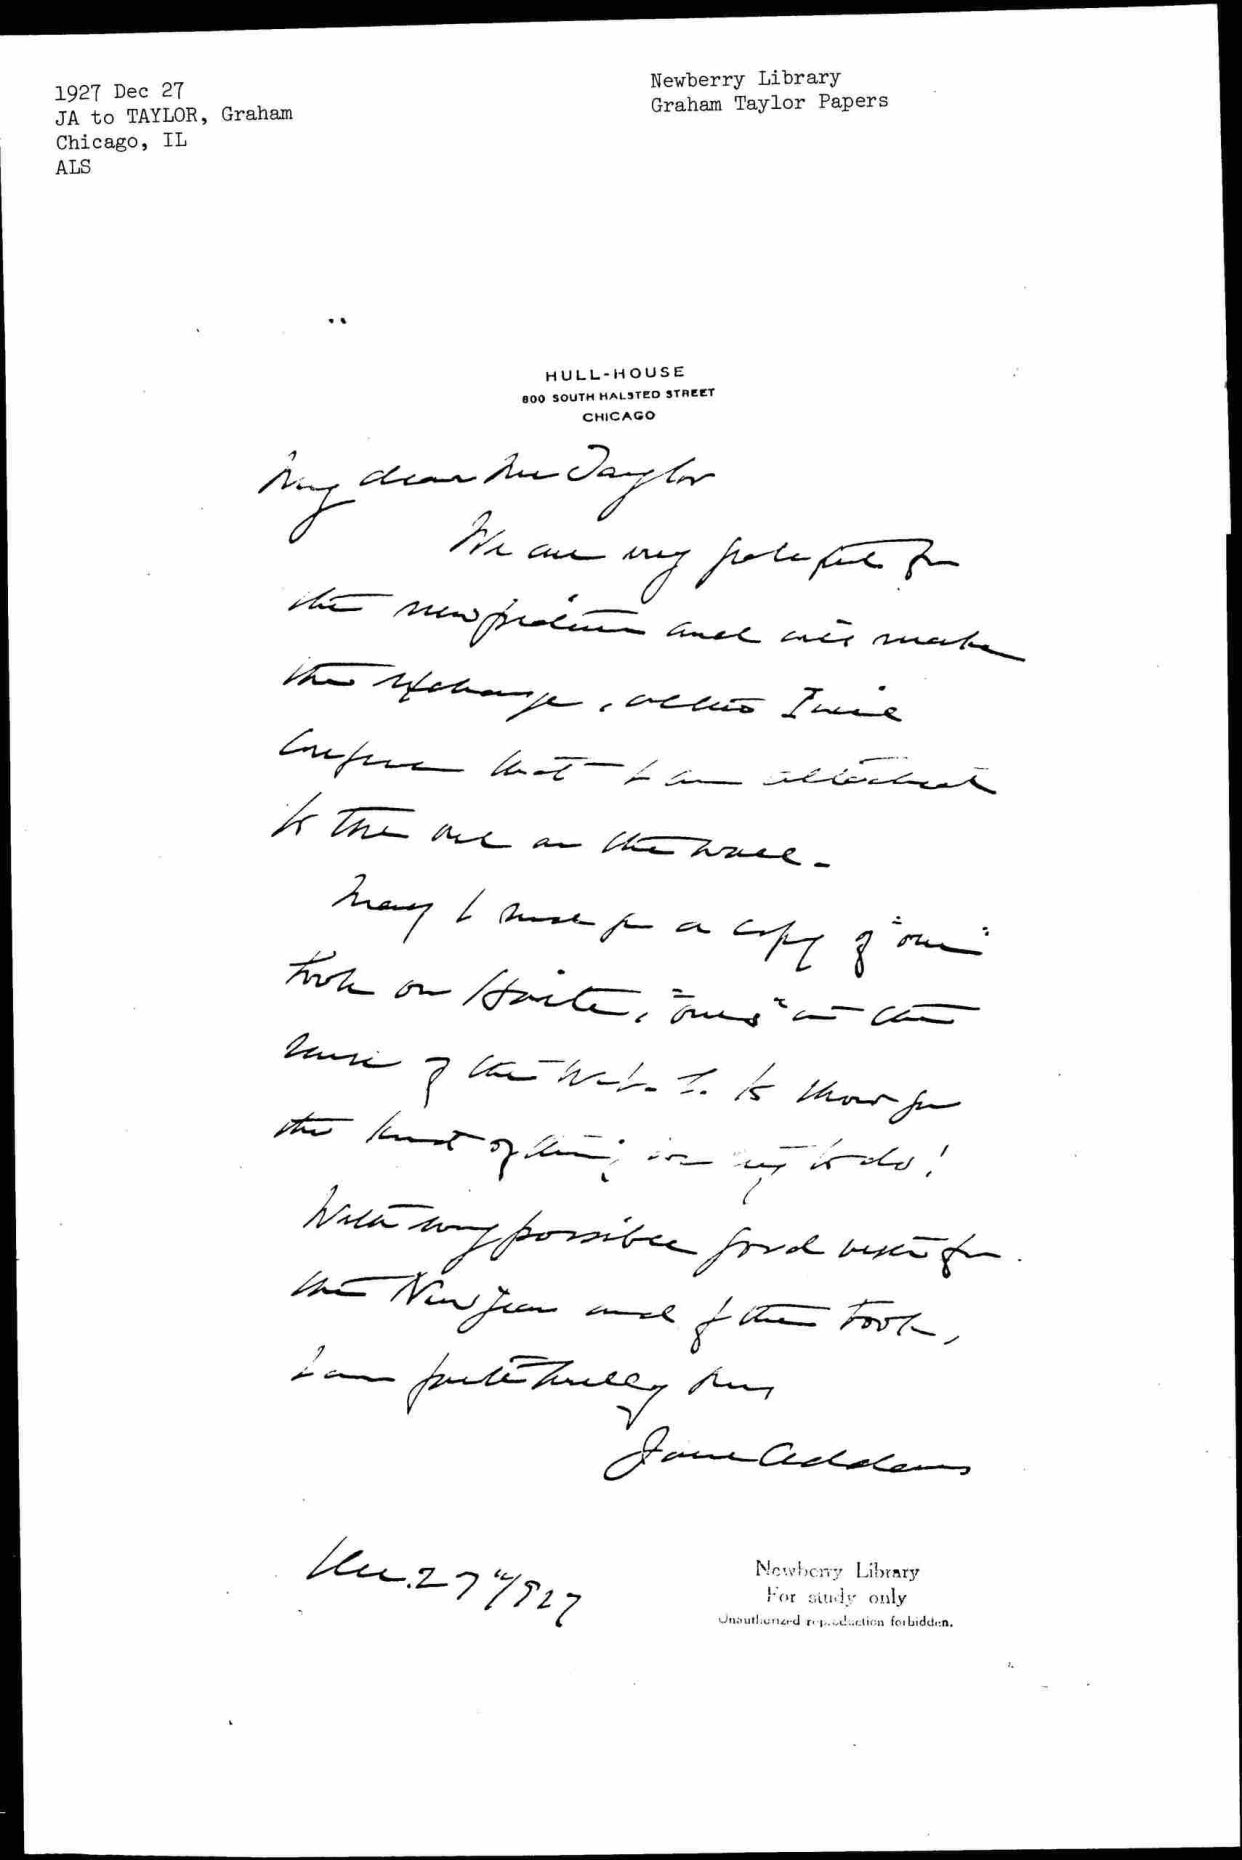 1927 Dec 27
JA to TAYLOR, Graham
Chicago, IL
ALS
Newberry Library
Graham Taylor Papers
HULL-HOUSE
800 SOUTH HALSTED STREET
CHICAGO
My dear Mr Taylor
We are very grateful for
the new picture and will make
the exchange, altho I will
confess that I am attached
to the one on the wall.
May I send you a copy of "our"
book on Haiti, "ours" in the
sense of the W.I.L. to show you
the kind of thing we try to do!
With every possible good wish for
the New Year and for the book,
I am faithfully yrs
Jane Addams
Dec. 27" 1927
Newberry Library
For study only
Unauthorized reproduction forbidden.